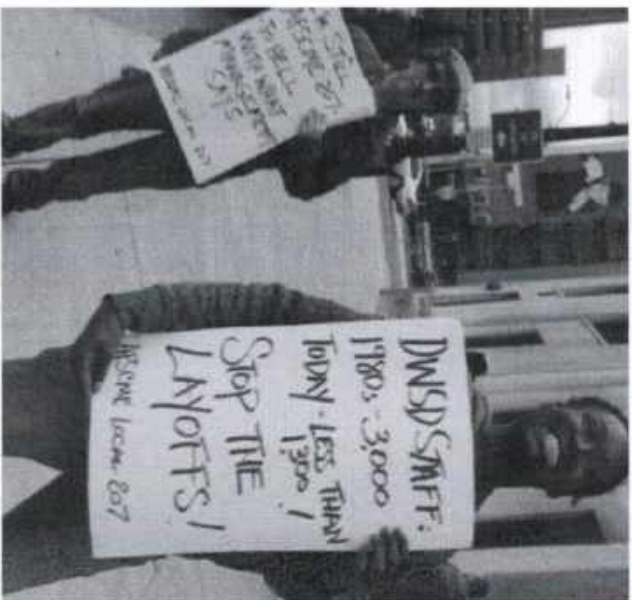 DWSD STAFF:
1980s - 3,000
TODAY - LESS THAN
1300!
STOP THE
LAYOFFS!
AFSCME LOCAL 207
STILL
AFSCME 207,
TO HELL
WITH WHAT
MANAGEMENT
SAYS
AFSCME LOCAL 207